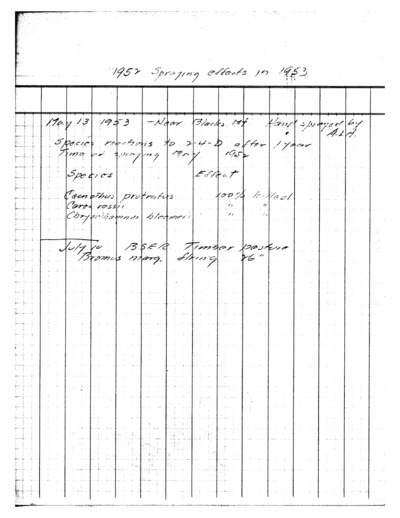 1952 Spraying effects in 1953
May 13 1953 - Near Blacks Mt Hand sprayed by
" A.L.H.
Species reactions to 2-4-D after 1 year
Time of spraying May 1952
Species Effect
Ceanothus protratus 100% killed
Carex rossii " "
Chrysothamnus bloomeri " "
July 10 BSER Timber pasture
Bromus marg. 26"